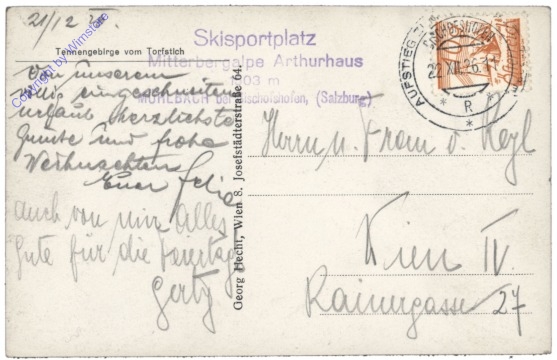 21/12
Tennengebirge vom Torfstich
Skisportplatz
Mitterbergalpe Arthurhaus
03 m
MÜHLBACH bei Bischofshofen, (Salzburg)
Von unserem
eingeschneiten
Urlaub herzlichste
Grüsse und frohe
Weihnachten
Euer Felix
auch von mir alles
Gute für die Feiertage
Gerty
Georg Hecht, Wien 8. Josefstädterstraße 64.
BISCHOFSHOFEN
22.XII.36
AUFSTIEG
* R *
*
Herrn u. Frau v.
Wien IV.
Rainergasse 27
Copyright by Wimstore